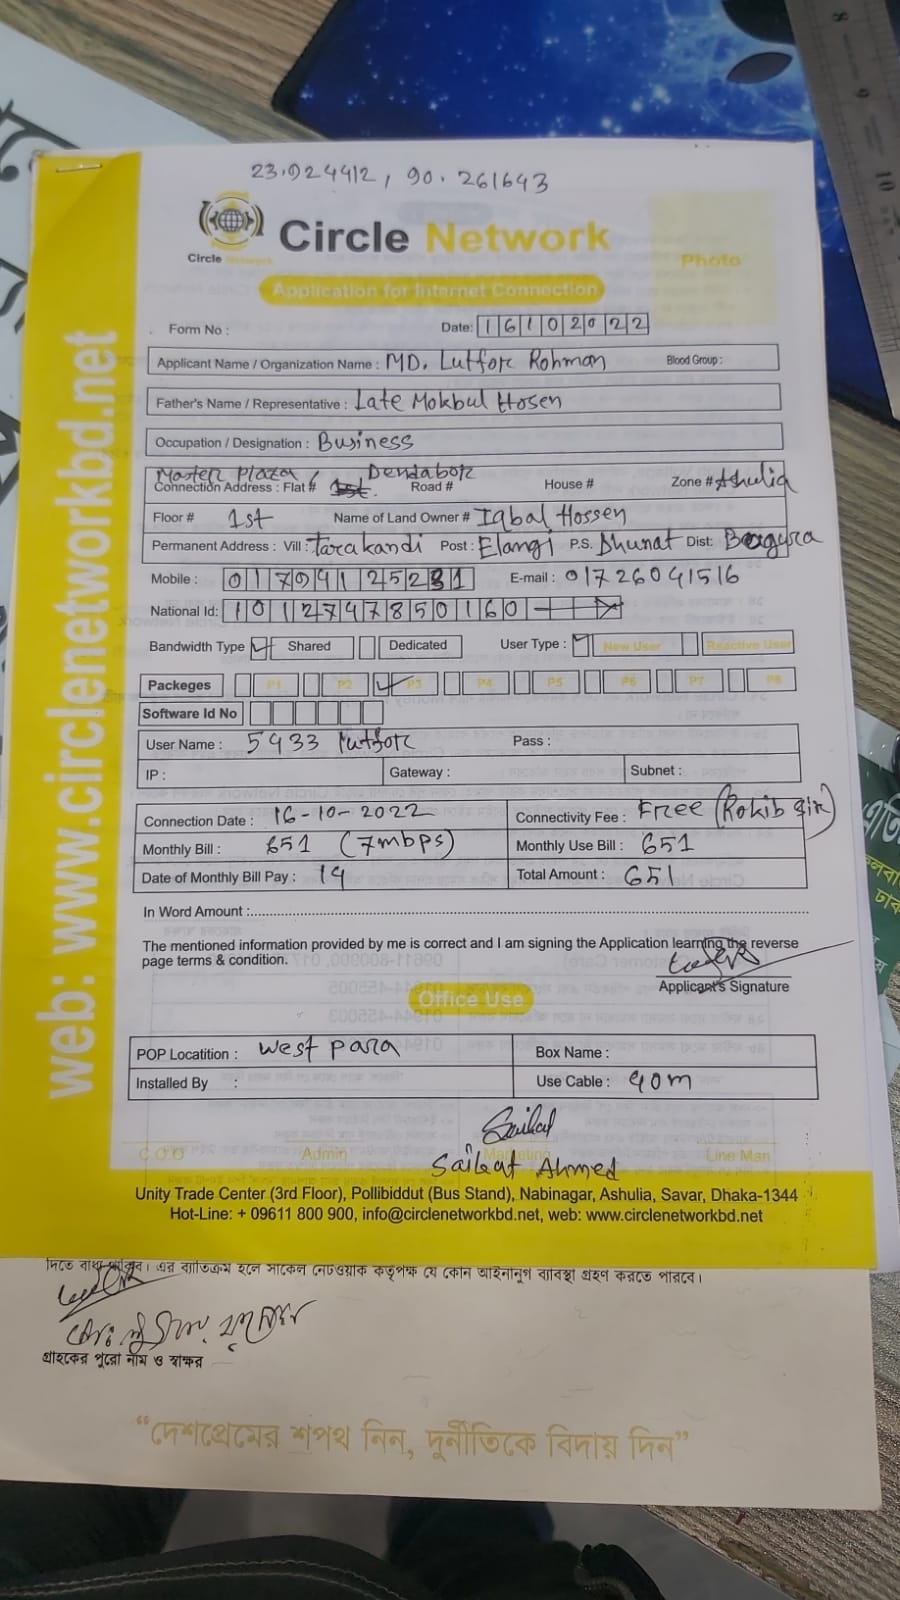 23.924412, 90.261643
Circle Network
Circle Network
Photo
Application for Internet Connection
Form No :
Date: 16102022
Applicant Name / Organization Name : MD. Lutfor Rohman Blood Group :
Father's Name / Representative : Late Mokbul Hosen
Occupation / Designation : Business
Master Plaza, Dendabor
Connection Address : Flat # 1st. Road # House # Zone # Ashulia
Floor # 1st Name of Land Owner # Iqbal Hossen
Permanent Address : Vill : Tarakandi Post : Elangi P.S. Dhunat Dist: Bogura
Mobile : E-mail : 01726041516
National Id: 1012747850160
Bandwidth Type Shared Dedicated User Type : New User Reactive User
Packeges P1 P2 P3 P4 P5 P6 P7 P8
Software Id No
User Name : 5433 Lutfor Pass :
IP : Gateway : Subnet :
Connection Date : 16-10-2022 Connectivity Fee : Free (Rokib Sir)
Monthly Bill : 651 (7mbps) Monthly Use Bill : 651
Date of Monthly Bill Pay : 14 Total Amount : 651
In Word Amount :
The mentioned information provided by me is correct and I am signing the Application learning the reverse
page terms & condition.
Applicant's Signature
Office Use
POP Locatition : West para Box Name :
Installed By : Use Cable : 40m
Saikat Ahmed
C.O.O Admin Marketing Line Man
Unity Trade Center (3rd Floor), Pollibiddut (Bus Stand), Nabinagar, Ashulia, Savar, Dhaka-1344
Hot-Line: + 09611 800 900, info@circlenetworkbd.net, web: www.circlenetworkbd.net
web: www.circlenetworkbd.net
দিতে বাধ্য থাকিব। এর ব্যতিক্রম হলে সার্কেল নেটওয়ার্ক কতৃপক্ষ যে কোন আইনানুগ ব্যবস্থা গ্রহণ করতে পারবে।
গ্রাহকের পুরো নাম ও স্বাক্ষর
“দেশপ্রেমের শপথ নিন, দুর্নীতিকে বিদায় দিন”
8
9
10